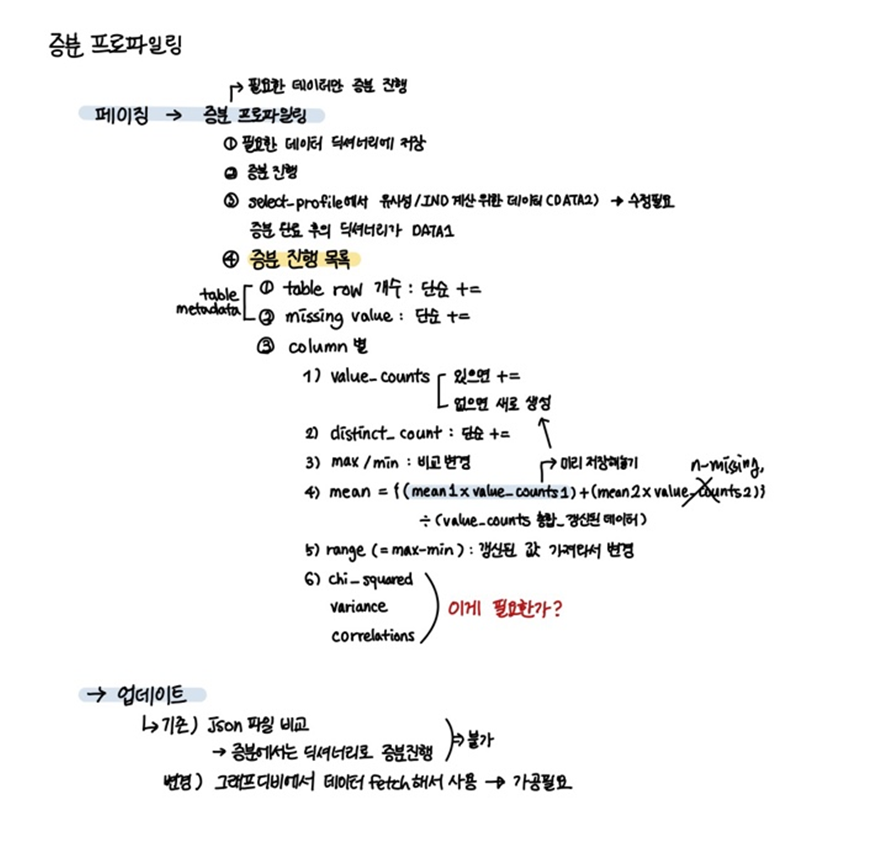 증분 프로파일링
→ 필요한 데이터만 증분 진행
페이징 → 증분 프로파일링
① 필요한 데이터 딕셔너리에 저장
② 증분 진행
③ select_profile에서 유사성/IND 계산 위한 데이터(DATA2) → 수정필요
증분 완료 후의 딕셔너리가 DATA1
④ 증분 진행 목록
table metadata
① table row 개수 : 단순 +=
② missing value : 단순 +=
③ column 별
1) value_counts 있으면 +=
없으면 새로 생성
2) distinct_count : 단순 +=
3) max/min : 비교 변경
→ 미리 저장해놓기
n-missing.
4) mean = {(mean1 x value_counts1)+(mean2 x value_counts2)}
÷ (value_counts 통합_갱신된 데이터)
5) range (= max-min) : 갱신된 값 가져와서 변경
6) chi_squared
variance
correlations
이게 필요한가?
→ 업데이트
↳ 기존) Json 파일 비교
→ 증분에서는 딕셔너리로 증분진행
⇒ 불가
변경) 그래프디비에서 데이터 fetch해서 사용 → 가공필요